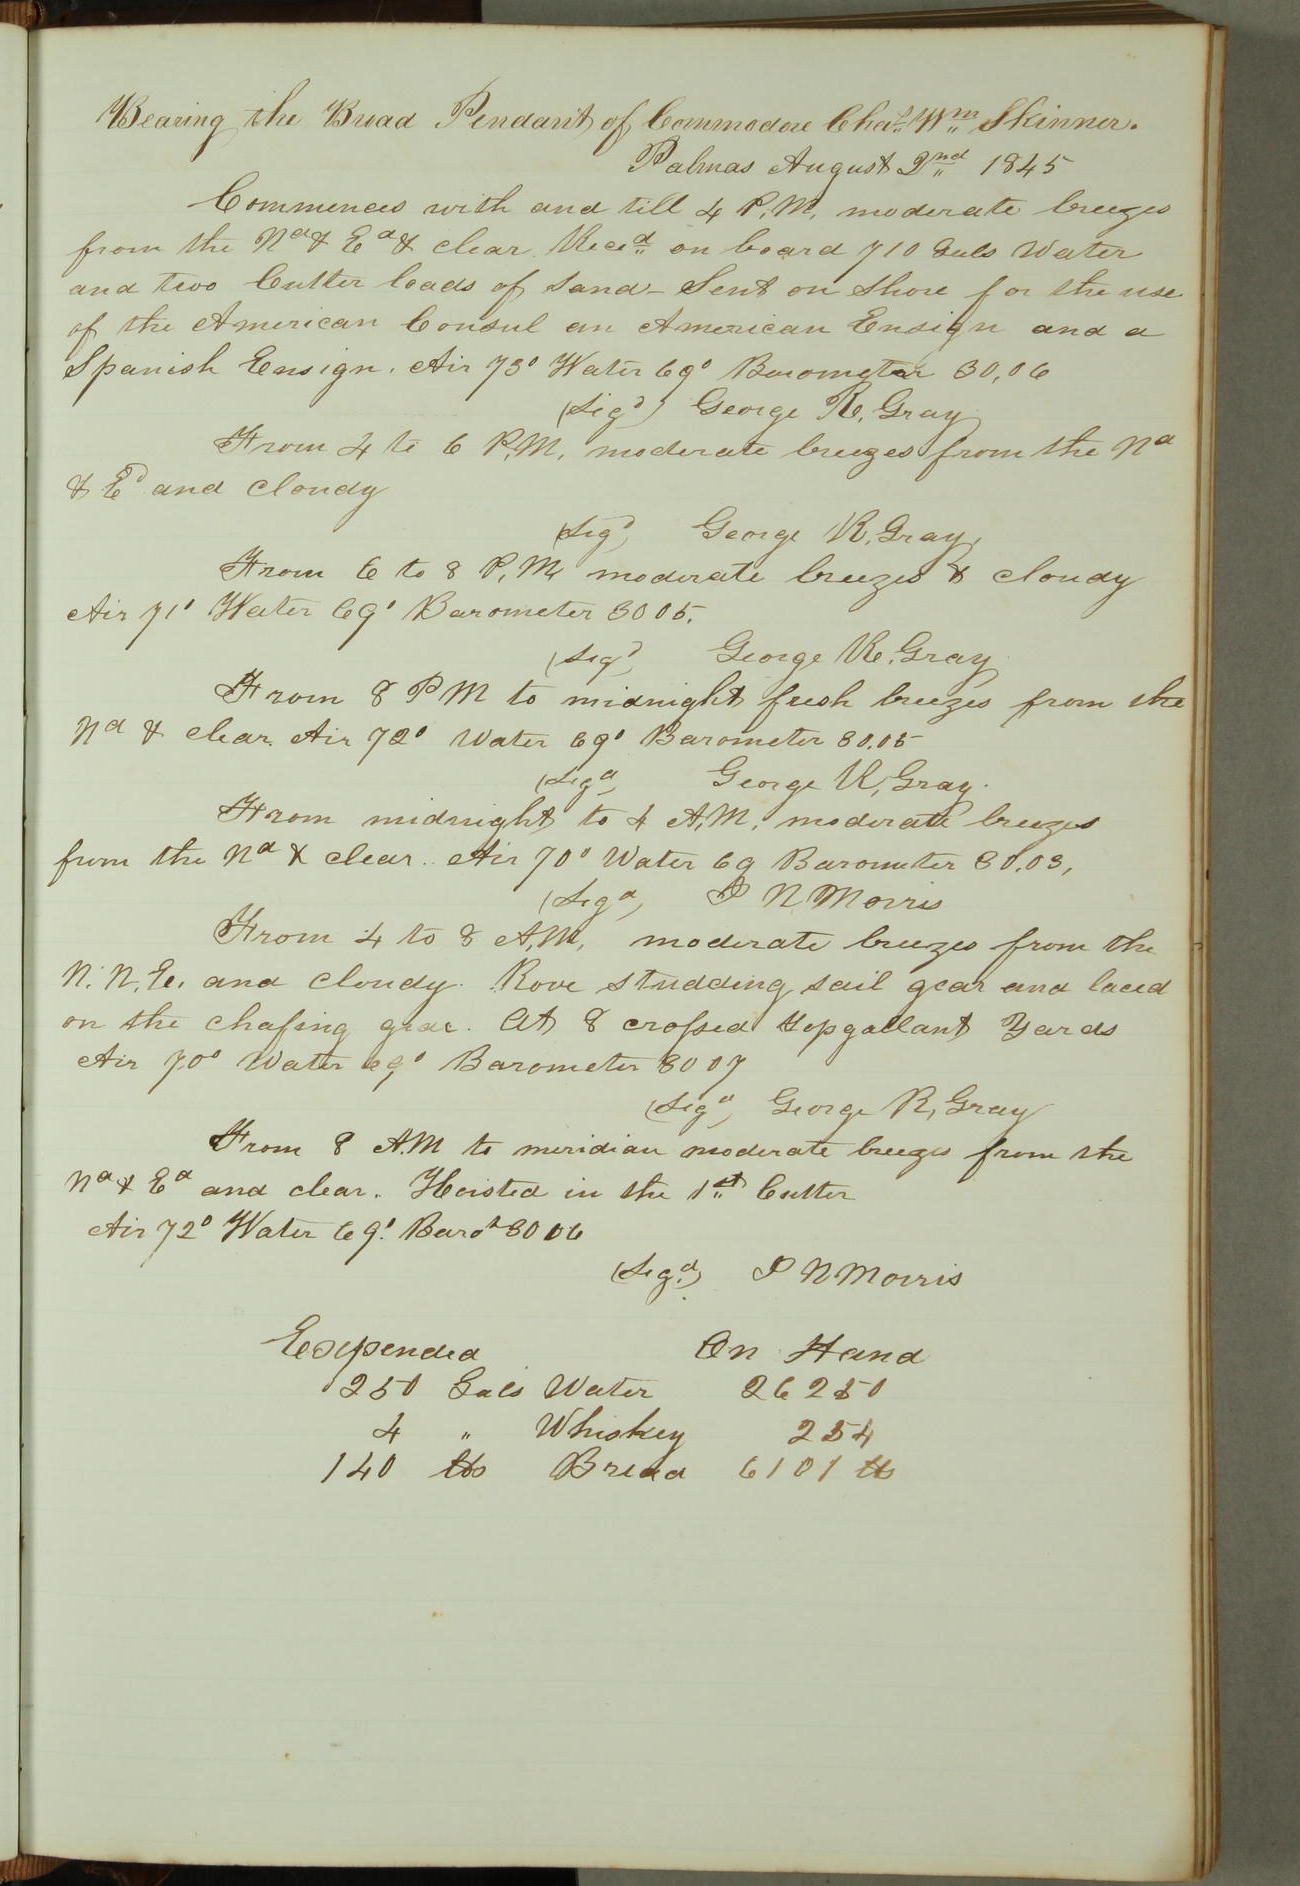 Bearing the Broad Pendant of Commodore Chas Wm Skinner.
Palmas August 2nd 1845
Commences with and till 4 P.M. moderate breezes
from the Nd & Ed & clear. Recd on board 710 Gals Water
and two Cutter loads of sand - Sent on shore for the use
of the American Consul an American Ensign and a
Spanish Ensign. Air 73° Water 69° Barometer 30,06
(Sigd) George R. Gray
From 4 to 6 P.M. moderate breezes from the Nd
& Ed and cloudy
(Sigd) George R. Gray
From 6 to 8 P.M. moderate breezes & cloudy
Air 71° Water 69° Barometer 3005.
(Sigd) George R. Gray
From 8 P M to midnight fresh breezes from the
Nd & clear. Air 72° Water 69° Barometer 30.05
(Sigd) George R. Gray.
From midnight to 4 A.M. moderate breezes
from the Nd & clear. Air 70° Water 69 Barometer 30.03,
(Sigd) I N Morris
From 4 to 8 A.M. moderate breezes from the
N. N. E. and cloudy. Rove studding sail gear and laced
on the chafing gear. At 8 crossed Topgallant Yards
Air 70° Water 69° Barometer 3007
(Sigd) George R. Gray
From 8 A.M to meridian moderate breezes from the
Nd & Ed and clear. Hoisted in the 1st Cutter
Air 72° Water 69° Baror 3006
(Sigd) I N Morris
Expended On Hand
250 Gals Water 26250
4 " Whiskey 254
140 lbs Bread 6101 lbs